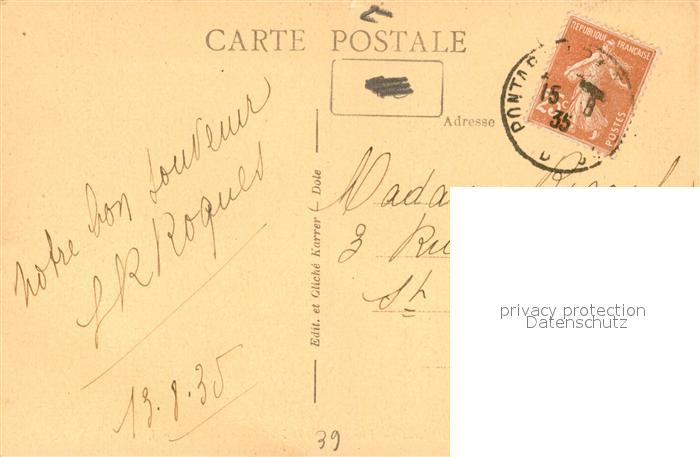 CARTE POSTALE
REPUBLIQUE FRANÇAISE
25c
POSTES
PONTAR
15 8
35
Adresse
notre bon souvenir
Roques
13.8.35
Edit. et Cliché Karrer - Dole
Mada
3 Ru
St
39
privacy protection
Datenschutz